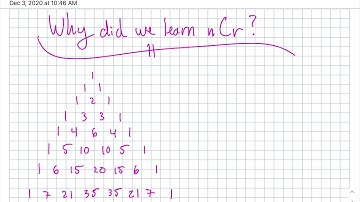 Dec 3, 2020 at 10:46 AM
Why did we learn nCr?
1
1 1
1 2 1
1 3 3 1
1 4 6 4 1
1 5 10 10 5 1
1 6 15 20 15 6 1
1 7 21 35 35 21 7 1